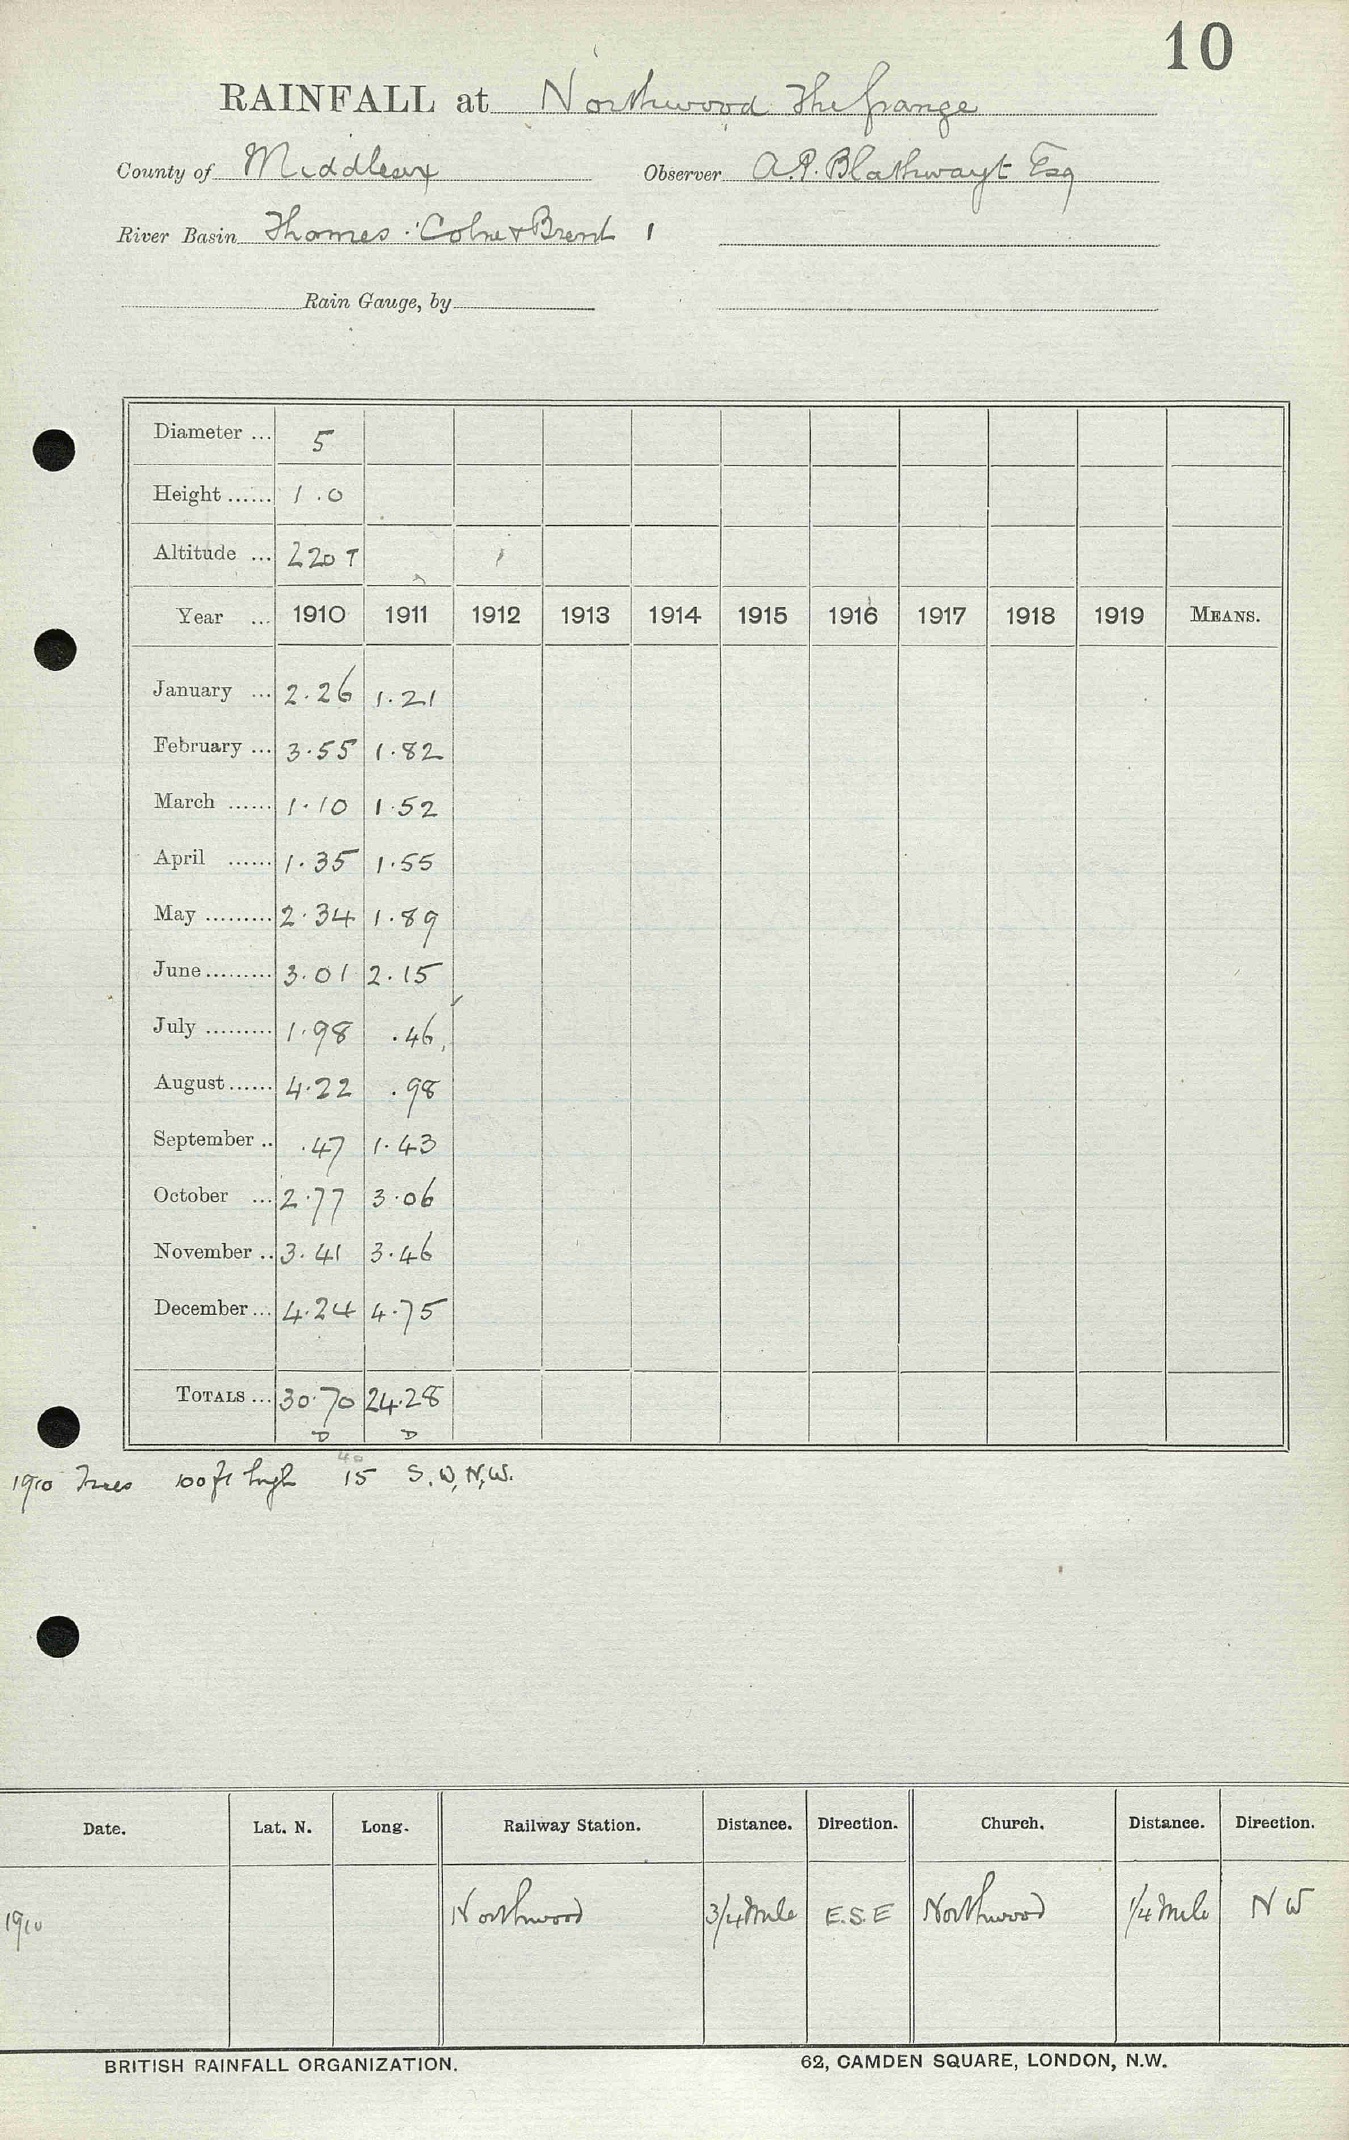 10
RAINFALL at Northwood The Grange
County of Middlesex Observer A.P. Blathwayt Esq
River Basin Thames · Colne & Brent 1
Rain Gauge, by
Diameter ... 5
Height ...... 1.0
Altitude ... 220 T
Year ... 1910 1911 1912 1913 1914 1915 1916 1917 1918 1919 MEANS.
January ... 2.26 1.21
February ... 3.55 1.82
March ...... 1.10 1.52
April ...... 1.35 1.55
May ......... 2.34 1.89
June ......... 3.01 2.15
July ......... 1.98 .46
August ...... 4.22 .98
September .. .47 1.43
October ... 2.77 3.06
November .. 3.41 3.46
December ... 4.24 4.75
TOTALS ... 30.70 24.28
D D
40
1910 Trees 100 ft high 15 S.W, N,W.
Date. Lat. N. Long. Railway Station. Distance. Direction. Church. Distance. Direction.
1910 Northwood 3/4 Mile E.S.E Northwood 1/4 Mile N W
BRITISH RAINFALL ORGANIZATION. 62, CAMDEN SQUARE, LONDON, N.W.